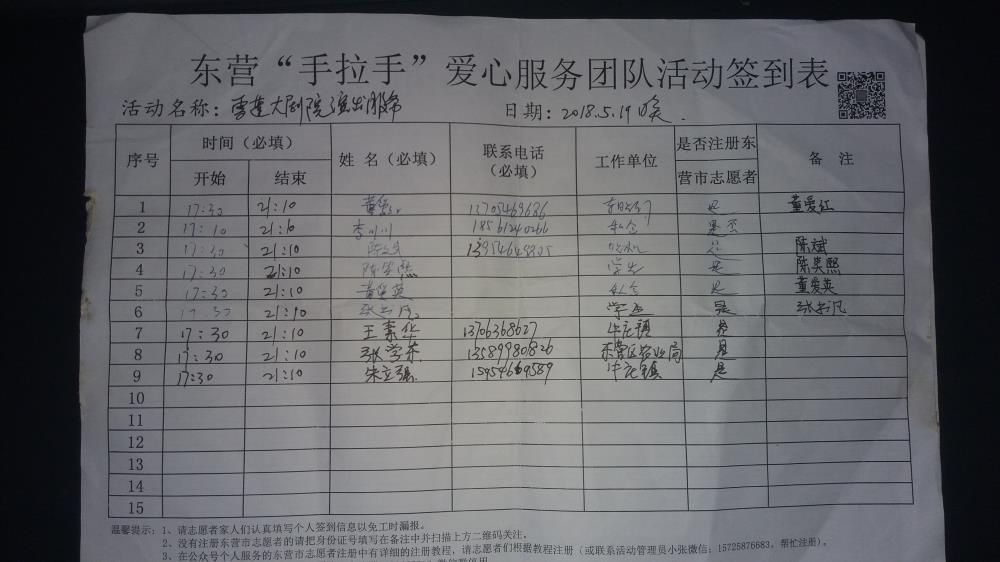 东营“手拉手”爱心服务团队活动签到表
活动名称：雪莲大剧院演出服务 日期：2018.5.19晚.
序号 时间（必填） 姓 名（必填） 联系电话（必填） 工作单位 是否注册东营市志愿者 备 注
开始 结束
1 17:30 21:10 13705469686 是 董爱红
2 17:10 21:10 李川川 18561240266 是否
3 17:30 21:10 陈斌 是 陈斌
4 17:30 21:10 陈奕熙 学生 是 陈奕熙
5 17:30 21:10 董爱英 是 董爱英
6 17:30 21:10 张书凡 学生 是 张书凡
7 17:30 21:10 王素华 13706368627 牛庄镇 是
8 17:30 21:10 张学东 13589980826 东营区农业局 是
9 17:30 21:10 朱立强 15954669589 牛庄镇 是
10
11
12
13
14
15
温馨提示：1、请志愿者家人们认真填写个人签到信息以免工时漏报。
2、没有注册东营市志愿者的请把身份证号填写在备注中并扫描上方二维码关注。
3、在公众号个人服务的东营市志愿者注册中有详细的注册教程，请志愿者们根据教程注册（或联系活动管理员小张微信：15725876683，帮忙注册）。